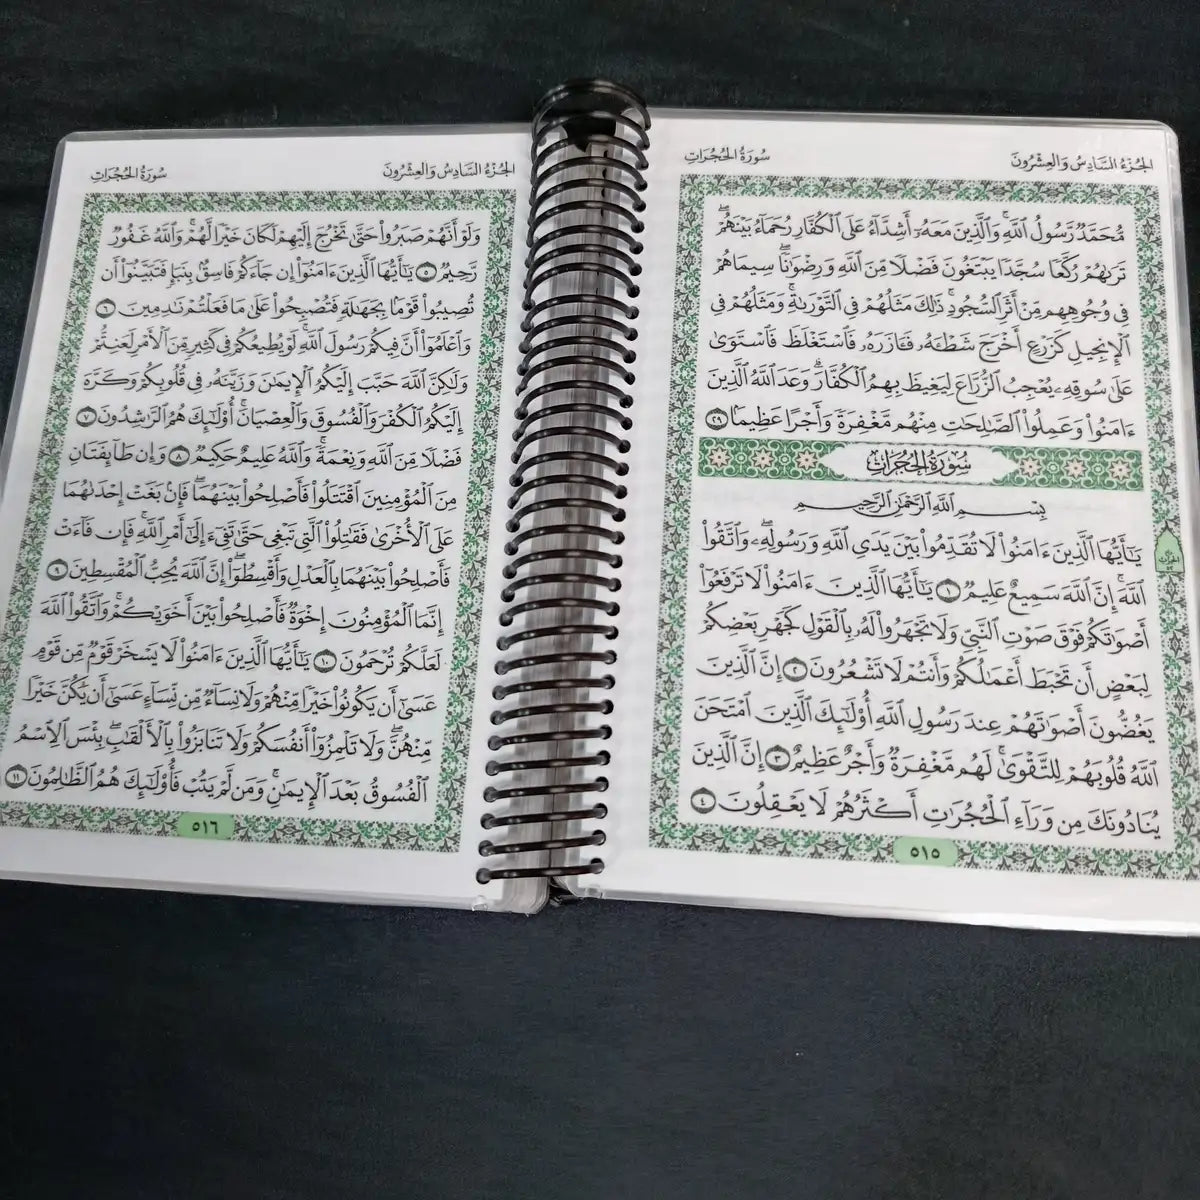 الجُزْءُ السَّادِسُ وَالعِشْرُونَ
سُورَةُ الحُجُرَاتِ
مُّحَمَّدٌ رَّسُولُ ٱللَّهِۚ وَٱلَّذِينَ مَعَهُۥٓ أَشِدَّآءُ عَلَى ٱلۡكُفَّارِ رُحَمَآءُ بَيۡنَهُمۡۖ
تَرَىٰهُمۡ رُكَّعٗا سُجَّدٗا يَبۡتَغُونَ فَضۡلٗا مِّنَ ٱللَّهِ وَرِضۡوَٰنٗاۖ سِيمَاهُمۡ
فِي وُجُوهِهِم مِّنۡ أَثَرِ ٱلسُّجُودِۚ ذَٰلِكَ مَثَلُهُمۡ فِي ٱلتَّوۡرَىٰةِۚ وَمَثَلُهُمۡ فِي
ٱلۡإِنجِيلِ كَزَرۡعٍ أَخۡرَجَ شَطۡـَٔهُۥ فَـَٔازَرَهُۥ فَٱسۡتَغۡلَظَ فَٱسۡتَوَىٰ
عَلَىٰ سُوقِهِۦ يُعۡجِبُ ٱلزُّرَّاعَ لِيَغِيظَ بِهِمُ ٱلۡكُفَّارَۗ وَعَدَ ٱللَّهُ ٱلَّذِينَ
ءَامَنُواْ وَعَمِلُواْ ٱلصَّٰلِحَٰتِ مِنۡهُم مَّغۡفِرَةٗ وَأَجۡرًا عَظِيمَۢا ٢٩
سُورَةُ الحُجُرَاتِ
بِسۡمِ ٱللَّهِ ٱلرَّحۡمَٰنِ ٱلرَّحِيمِ
يَٰٓأَيُّهَا ٱلَّذِينَ ءَامَنُواْ لَا تُقَدِّمُواْ بَيۡنَ يَدَيِ ٱللَّهِ وَرَسُولِهِۦۖ وَٱتَّقُواْ
ٱللَّهَۚ إِنَّ ٱللَّهَ سَمِيعٌ عَلِيمٞ ١ يَٰٓأَيُّهَا ٱلَّذِينَ ءَامَنُواْ لَا تَرۡفَعُوٓاْ
أَصۡوَٰتَكُمۡ فَوۡقَ صَوۡتِ ٱلنَّبِيِّ وَلَا تَجۡهَرُواْ لَهُۥ بِٱلۡقَوۡلِ كَجَهۡرِ بَعۡضِكُمۡ
لِبَعۡضٍ أَن تَحۡبَطَ أَعۡمَٰلُكُمۡ وَأَنتُمۡ لَا تَشۡعُرُونَ ٢ إِنَّ ٱلَّذِينَ
يَغُضُّونَ أَصۡوَٰتَهُمۡ عِندَ رَسُولِ ٱللَّهِ أُوْلَٰٓئِكَ ٱلَّذِينَ ٱمۡتَحَنَ
ٱللَّهُ قُلُوبَهُمۡ لِلتَّقۡوَىٰۚ لَهُم مَّغۡفِرَةٞ وَأَجۡرٌ عَظِيمٌ ٣ إِنَّ ٱلَّذِينَ
يُنَادُونَكَ مِن وَرَآءِ ٱلۡحُجُرَٰتِ أَكۡثَرُهُمۡ لَا يَعۡقِلُونَ ٤
٥١٥
الجُزْءُ السَّادِسُ وَالعِشْرُونَ
سُورَةُ الحُجُرَاتِ
وَلَوۡ أَنَّهُمۡ صَبَرُواْ حَتَّىٰ تَخۡرُجَ إِلَيۡهِمۡ لَكَانَ خَيۡرٗا لَّهُمۡۚ وَٱللَّهُ غَفُورٞ
رَّحِيمٞ ٥ يَٰٓأَيُّهَا ٱلَّذِينَ ءَامَنُوٓاْ إِن جَآءَكُمۡ فَاسِقُۢ بِنَبَإٖ فَتَبَيَّنُوٓاْ أَن
تُصِيبُواْ قَوۡمَۢا بِجَهَٰلَةٖ فَتُصۡبِحُواْ عَلَىٰ مَا فَعَلۡتُمۡ نَٰدِمِينَ ٦
وَٱعۡلَمُوٓاْ أَنَّ فِيكُمۡ رَسُولَ ٱللَّهِۚ لَوۡ يُطِيعُكُمۡ فِي كَثِيرٖ مِّنَ ٱلۡأَمۡرِ لَعَنِتُّمۡ
وَلَٰكِنَّ ٱللَّهَ حَبَّبَ إِلَيۡكُمُ ٱلۡإِيمَٰنَ وَزَيَّنَهُۥ فِي قُلُوبِكُمۡ وَكَرَّهَ
إِلَيۡكُمُ ٱلۡكُفۡرَ وَٱلۡفُسُوقَ وَٱلۡعِصۡيَانَۚ أُوْلَٰٓئِكَ هُمُ ٱلرَّٰشِدُونَ ٧
فَضۡلٗا مِّنَ ٱللَّهِ وَنِعۡمَةٗۚ وَٱللَّهُ عَلِيمٌ حَكِيمٞ ٨ وَإِن طَآئِفَتَانِ
مِنَ ٱلۡمُؤۡمِنِينَ ٱقۡتَتَلُواْ فَأَصۡلِحُواْ بَيۡنَهُمَاۖ فَإِنۢ بَغَتۡ إِحۡدَىٰهُمَا
عَلَى ٱلۡأُخۡرَىٰ فَقَٰتِلُواْ ٱلَّتِي تَبۡغِي حَتَّىٰ تَفِيٓءَ إِلَىٰٓ أَمۡرِ ٱللَّهِۚ فَإِن فَآءَتۡ
فَأَصۡلِحُواْ بَيۡنَهُمَا بِٱلۡعَدۡلِ وَأَقۡسِطُوٓاْۖ إِنَّ ٱللَّهَ يُحِبُّ ٱلۡمُقۡسِطِينَ ٩
إِنَّمَا ٱلۡمُؤۡمِنُونَ إِخۡوَةٞ فَأَصۡلِحُواْ بَيۡنَ أَخَوَيۡكُمۡۚ وَٱتَّقُواْ ٱللَّهَ
لَعَلَّكُمۡ تُرۡحَمُونَ ١٠ يَٰٓأَيُّهَا ٱلَّذِينَ ءَامَنُواْ لَا يَسۡخَرۡ قَوۡمٞ مِّن قَوۡمٍ
عَسَىٰٓ أَن يَكُونُواْ خَيۡرٗا مِّنۡهُمۡ وَلَا نِسَآءٞ مِّن نِّسَآءٍ عَسَىٰٓ أَن يَكُنَّ خَيۡرٗا
مِّنۡهُنَّۖ وَلَا تَلۡمِزُوٓاْ أَنفُسَكُمۡ وَلَا تَنَابَزُواْ بِٱلۡأَلۡقَٰبِۖ بِئۡسَ ٱلِٱسۡمُ
ٱلۡفُسُوقُ بَعۡدَ ٱلۡإِيمَٰنِۚ وَمَن لَّمۡ يَتُبۡ فَأُوْلَٰٓئِكَ هُمُ ٱلظَّٰلِمُونَ ١١
٥١٦